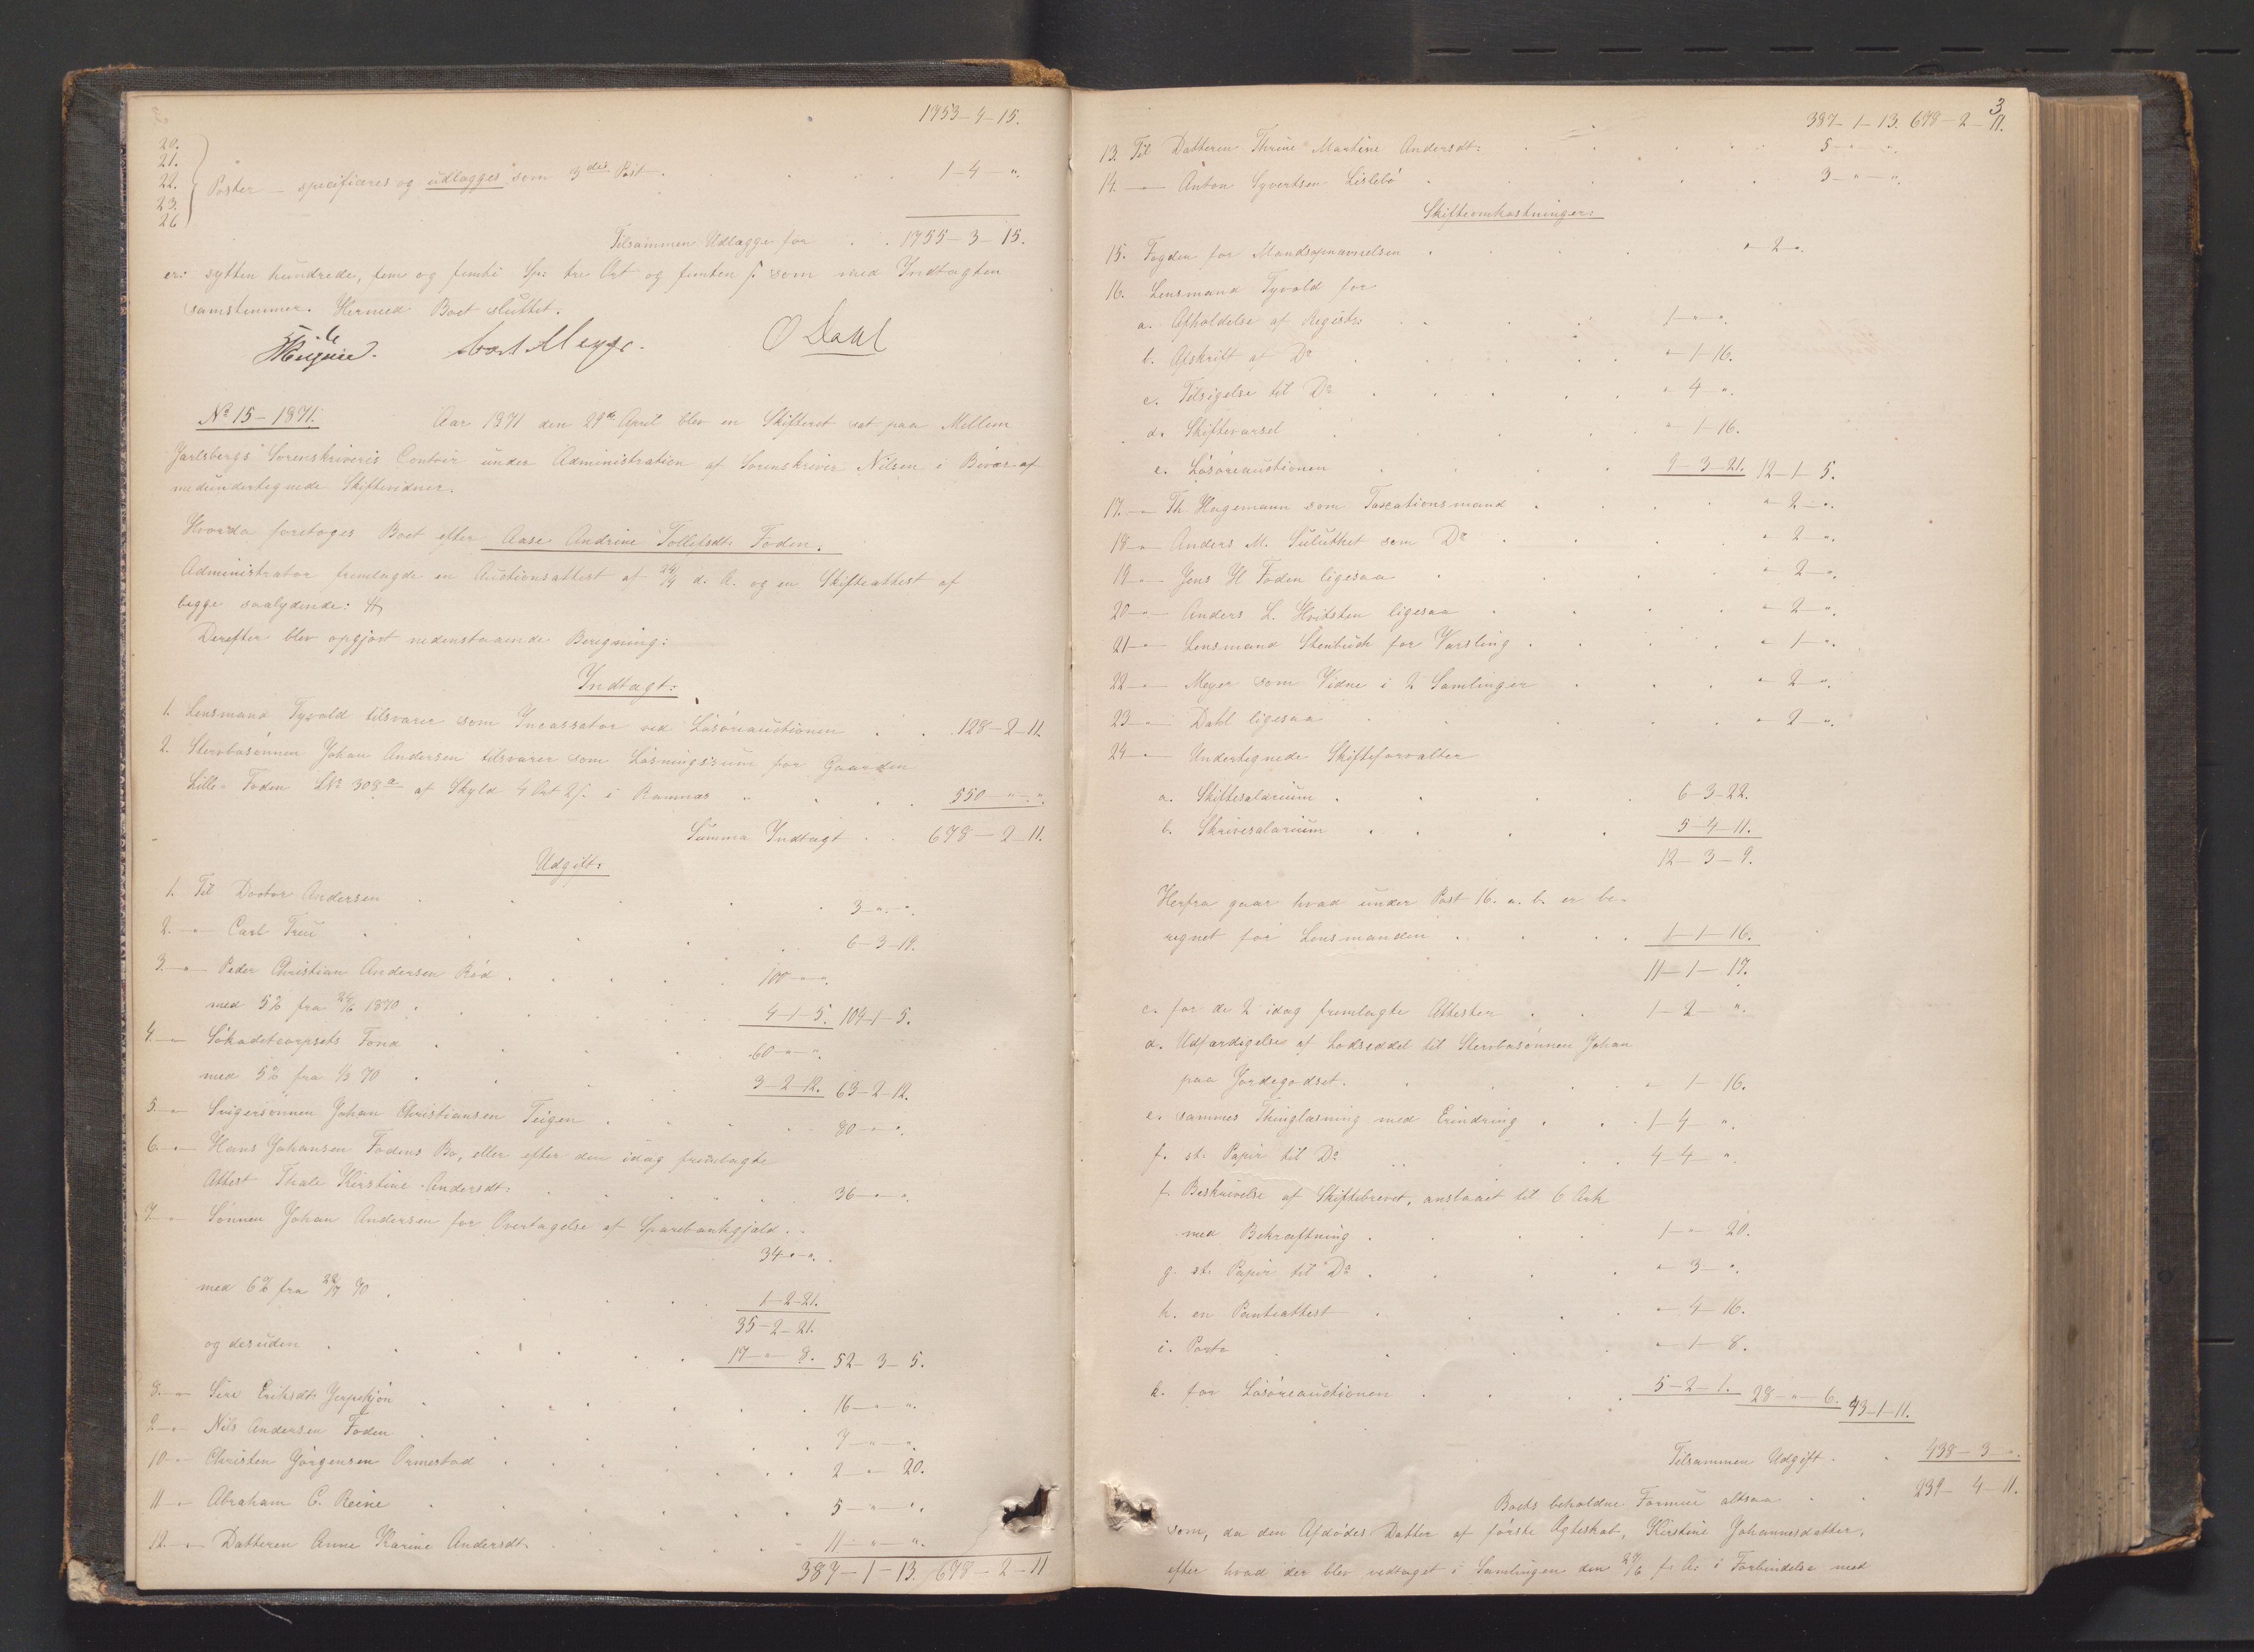 1753-4-15.
20.
21.
22.
23.
26
Poster - specificeres og udlægges som 3die Post . . . . 1-4-".
Tilsammen Udlægge for . . 1755-3-15.
er: sytten hundrede, fem og femti Spd tre Ort og femten s. som med Indtægten
samstemmer. Hermed Boet sluttet.
Carl Meyer. O Dahl
No 15-1871. Aar 1871 den 29de April blev en Skifteret sat paa Mellem
Jarlsbergs Sorenskriveris Contoir under Administration af Sorenskriver Nilsen i Bivær af
medundertegnede Skiftevidner.
Hvorda foretoges Boet efter Aase Andrine Tollefsdt. Foden.
Administrator fremlagde en Auctionsattest af d. A. og en Skifteattest af
begge saalydende:
Derefter blev opgjort nedenstaaende Beregning:
Indtægt:
1. Lensmand Tyvold tilsvarer som Incassator ved Løsøreauctionen . . 128-2-11.
2. Stervbosønnen Johan Andersen tilsvarer som Løsningssum for Gaarden
Lille-Foden LNo 308a af Skyld 4 Ort 2 s. i Ramnæs . . . . 550-"-".
Summa Indtægt . . 678-2-11.
Udgift:
1. Til Doctor Andersen . . . . 3-"-".
2. -"- Carl Treu . . . . 6-3-19.
3. -"- Peder Christian Andersen Rød . . . . 100-"-".
med 5% fra 24/6 1870 . . . . 4-1-5. 104-1-5.
4. -"- Søkadetcorpsets Fond . . . . 60-"-".
med 5% fra 1/3 70 . . . . 3-2-12. 63-2-12.
5. -"- Svigersønnen Johan Christiansen Teigen . . . . 80-"-".
6. -"- Hans Johansen Fodens Bo, eller efter den idag fremlagte
Attest Thale Kirstine Andersdt. . . . . 36-"-".
7 -"- Sønnen Johan Andersen for Overtagelse af Sparebankgjæld . .
34-"-".
med 6% fra 22/7 70 . . . . 1-2-21.
35-2-21.
og desuden . . . . 17-"-8. 52-3-5.
8. -"- Siri Eriksdt. Jerpekjøn . . . . 16-"-".
9 -"- Nils Andersen Foden . . . . 7-"-".
10 -"- Christen Jørgensen Ormestad . . . . 2-"-20.
11 -"- Abraham C. Reine . . . . 5-"-".
12. -"- Datteren Anne Karine Andersdt. . . . . 11-"-".
387-1-13. 678-2-11
3
387-1-13. 678-2-11.
13. Til Datteren Thrine Martine Andersdt. . . . . 5-"-".
14. -"- Anton Syvertsen Lislebø . . . . 3-"-".
Skifteomkostninger:
15. Fogden for Mandsopnævnelsen . . . . "-2-".
16. Lensmand Tyvold for
a. Afholdelse af Registr. . . . 1-"-".
b. Afskrift af Do . . . . "-1-16.
c. Tilsigelse til Do . . . . "-4-".
d. Skiftevarsel . . . . "-1-16.
e. Løsøreauctionen . . . . 9-3-21. 12-1-5.
17. -"- Th. Hagemann som Taxationsmand . . . . "-2-".
18 -"- Anders M. Suluthet som Do . . . . "-2-".
19 -"- Jens H Foden ligesaa . . . . "-2-".
20 -"- Anders L. Hvitsten ligesaa . . . . "-2-".
21 -"- Lensmand Stenbuch for Varsling . . . . "-1-".
22 -"- Meyer som Vidne i 2 Samlinger . . . . "-2-".
23 -"- Dahl ligesaa . . . . "-2-".
24 -"- Undertegnede Skifteforvalter
a. Skiftesalarium . . . . 6-3-22.
b. Skrivesalarium . . . . 5-4-11.
12-3-9.
Herfra gaar hvad under Post 16. a. b. er be-
regnet for Lensmanden . . . . 1-1-16.
11-1-17.
c. for de 2 idag fremlagte Attester . . 1-2-".
d. Udfærdigelse af Lodseddel til Stervbosønnen Johan
paa Jordegodset. . . . . "-1-16.
e. sammes Thinglæsning med Erindring . . . 1-4-".
f. st. Papir til Do . . . 4-4-".
f. Beskrivelse af Skiftebrevet, anslaaet til 6 Ark
med Bekræftning . . . . 1-"-20.
g. st. Papir til Do . . . . "-3-".
h. en Panteattest . . . "-4-16.
i. Porto . . . . "-1-8.
k. for Løsøreauctionen . . . . 5-2-1. 28-"-6. 43-1-11.
Tilsammen Udgift . . 438-3-".
Boets beholdne Formue altsaa . . 239-4-11.
som, da den Afdødes Datter af første Ægteskab, Kirstine Johannesdatter,
efter hvad der blev vedtaget i Samlingen den 24/6 f. A. i Forbindelse med